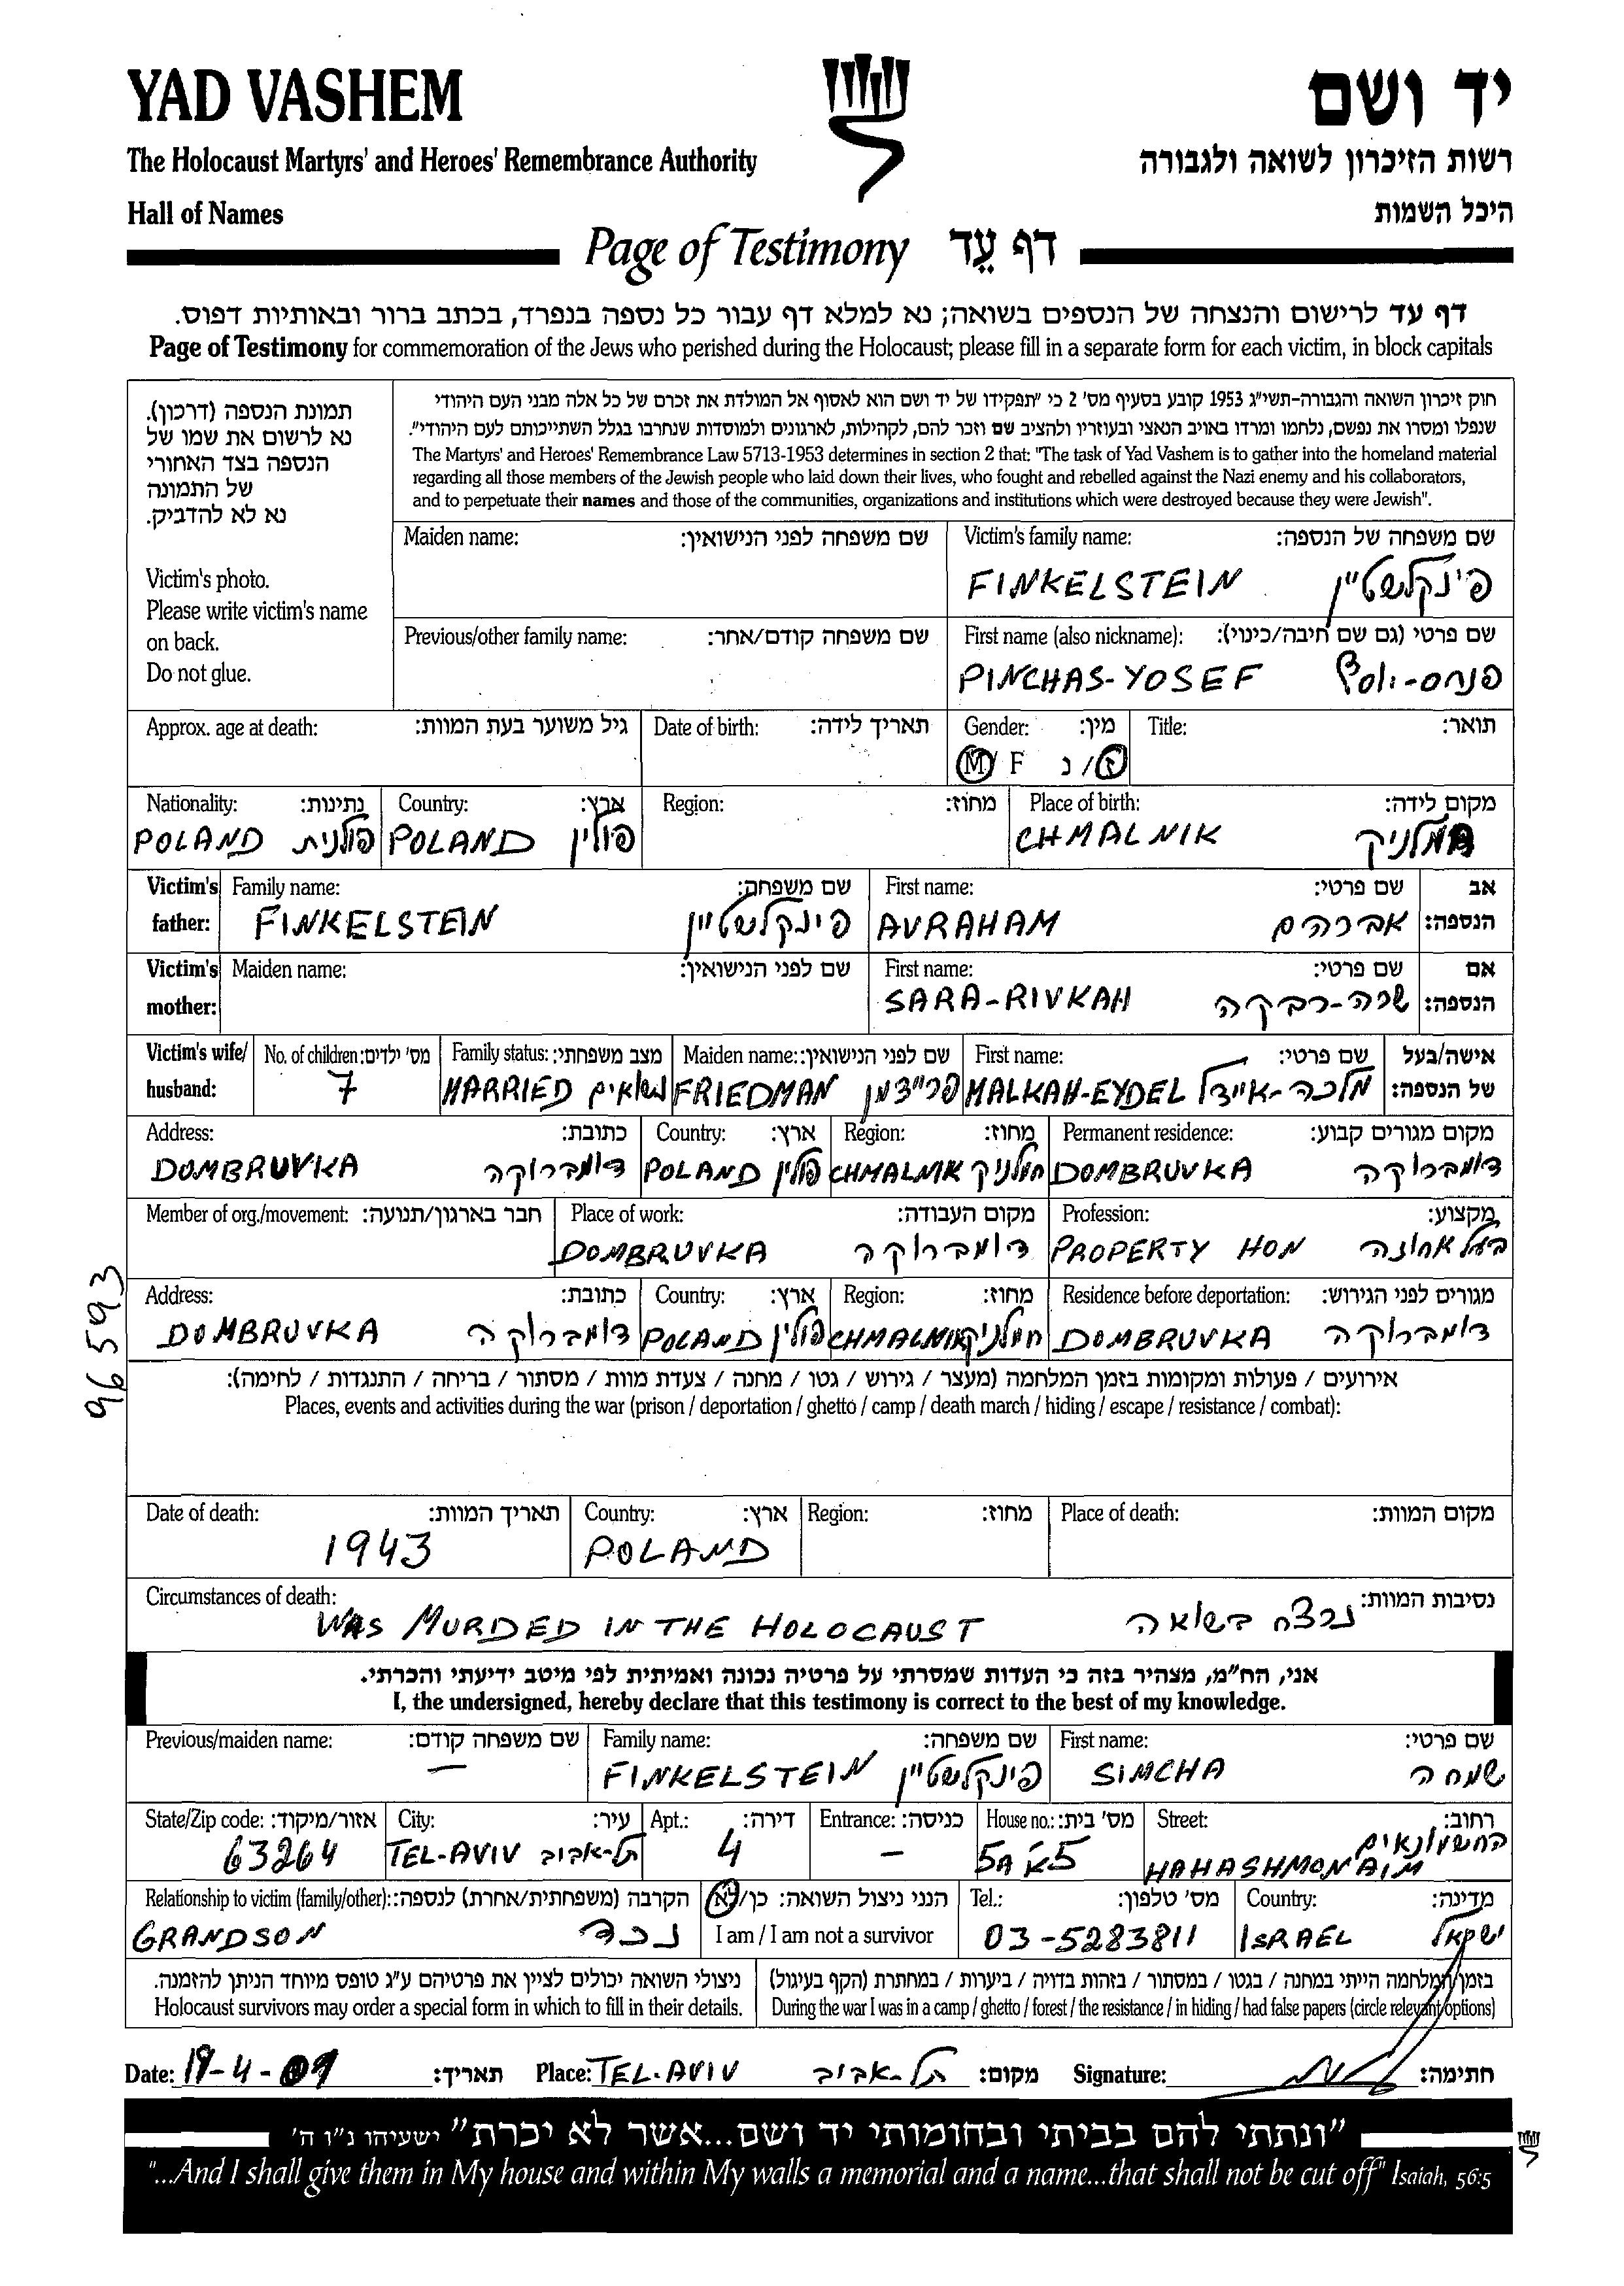 YAD VASHEM יד ושם
The Holocaust Martyrs' and Heroes' Remembrance Authority רשות הזיכרון לשואה ולגבורה
Hall of Names היכל השמות
Page of Testimony דף עֵד
דף עד לרישום והנצחה של הנספים בשואה; נא למלא דף עבור כל נספה בנפרד, בכתב ברור ובאותיות דפוס.
Page of Testimony for commemoration of the Jews who perished during the Holocaust; please fill in a separate form for each victim, in block capitals
תמונת הנספה (דרכון).
נא לרשום את שמו של
הנספה בצד האחורי
של התמונה
נא לא להדביק.
Victim's photo.
Please write victim's name
on back.
Do not glue.
חוק זיכרון השואה והגבורה-תשי"ג 1953 קובע בסעיף מס' 2 כי "תפקידו של יד ושם הוא לאסוף אל המולדת את זכרם של כל אלה מבני העם היהודי
שנפלו ומסרו את נפשם, נלחמו ומרדו באויב הנאצי ובעוזריו ולהציב שם וזכר להם, לקהילות, לארגונים ולמוסדות שנחרבו בגלל השתייכותם לעם היהודי".
The Martyrs' and Heroes' Remembrance Law 5713-1953 determines in section 2 that: "The task of Yad Vashem is to gather into the homeland material
regarding all those members of the Jewish people who laid down their lives, who fought and rebelled against the Nazi enemy and his collaborators,
and to perpetuate their names and those of the communities, organizations and institutions which were destroyed because they were Jewish".
Maiden name: שם משפחה לפני הנישואין: Victim's family name: שם משפחה של הנספה:
FINKELSTEIN פינקלשטיין
Previous/other family name: שם משפחה קודם/אחר: First name (also nickname): שם פרטי (גם שם חיבה/כינוי):
PINCHAS-YOSEF פנחס-יוסף
Approx. age at death: גיל משוער בעת המוות: Date of birth: תאריך לידה: Gender: מין: Title: תואר:
M/ F ז/ נ
Nationality: נתינות: Country: ארץ: Region: מחוז: Place of birth: מקום לידה:
POLAND פולנית POLAND פולין CHMALNIK חמלניק
Victim's Family name: שם משפחה: First name: שם פרטי: אב
father: FINKELSTEIN פינקלשטיין AVRAHAM אברהם הנספה:
Victim's Maiden name: שם לפני הנישואין: First name: שם פרטי: אם
mother: SARA-RIVKAH שרה-רבקה הנספה:
Victim's wife/ No. of children: מס' ילדים: Family status: מצב משפחתי: Maiden name: שם לפני הנישואין: First name: שם פרטי: אישה/בעל
husband: 7 MARRIED נשואים FRIEDMAN פריידמן MALKAH-EYDEL מלכה-איידל של הנספה:
Address: כתובת: Country: ארץ: Region: מחוז: Permanent residence: מקום מגורים קבוע:
DOMBRUVKA דומברוקה POLAND פולין CHMALNIK חמלניק DOMBRUVKA דומברוקה
Member of org./movement: חבר בארגון/תנועה: Place of work: מקום העבודה: Profession: מקצוע:
DOMBRUVKA דומברוקה PROPERTY HON בעל אחוזה
Address: כתובת: Country: ארץ: Region: מחוז: Residence before deportation: מגורים לפני הגירוש:
DOMBRUVKA דומברוקה POLAND פולין CHMALNIK חמלניק DOMBRUVKA דומברוקה
96593
אירועים / פעולות ומקומות בזמן המלחמה (מעצר / גירוש / גטו / מחנה / צעדת מוות / מסתור / בריחה / התנגדות / לחימה):
Places, events and activities during the war (prison / deportation / ghetto / camp / death march / hiding / escape / resistance / combat):
Date of death: תאריך המוות: Country: ארץ: Region: מחוז: Place of death: מקום המוות:
1943 POLAND
Circumstances of death: נסיבות המוות:
WAS MURDED IN THE HOLOCAUST נרצח בשואה
אני, הח"מ, מצהיר בזה כי העדות שמסרתי על פרטיה נכונה ואמיתית לפי מיטב ידיעתי והכרתי.
I, the undersigned, hereby declare that this testimony is correct to the best of my knowledge.
Previous/maiden name: שם משפחה קודם: Family name: שם משפחה: First name: שם פרטי:
— FINKELSTEIN פינקלשטיין SIMCHA שמחה
State/Zip code: אזור/מיקוד: City: עיר: Apt.: דירה: Entrance: כניסה: House no.: מס' בית: Street: רחוב:
63264 TEL-AVIV תל-אביב 4 – 5A 5א' HAHASHMON'AIM החשמונאים
Relationship to victim (family/other): הקרבה (משפחתית/אחרת) לנספה: הנני ניצול השואה: כן/לא Tel.: מס' טלפון: Country: מדינה:
GRANDSON נכד I am / I am not a survivor 03-5283811 ISRAEL ישראל
ניצולי השואה יכולים לציין את פרטיהם ע"ג טופס מיוחד הניתן להזמנה. בזמן המלחמה הייתי במחנה / בגטו / במסתור / בזהות בדויה / ביערות / במחתרת (הקף בעיגול)
Holocaust survivors may order a special form in which to fill in their details. During the war I was in a camp / ghetto / forest / the resistance / in hiding / had false papers (circle relevant options)
Date: 19-4-09 תאריך: Place: TEL-AVIV תל-אביב מקום: Signature: חתימה:
"ונתתי להם בביתי ובחומותי יד ושם...אשר לא יכרת" ישעיהו נ"ו ה'
"...And I shall give them in My house and within My walls a memorial and a name...that shall not be cut off" Isaiah, 56:5